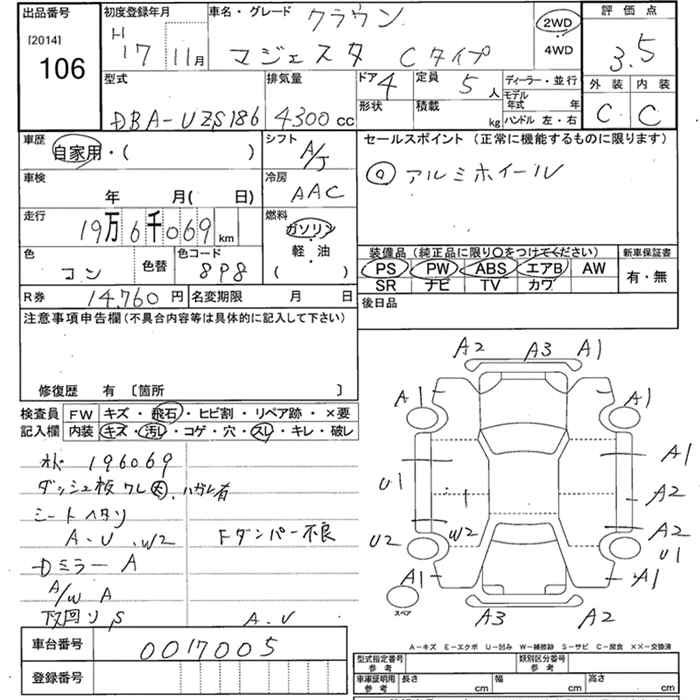 出品番号 [2014] 106
初度登録年月 H 17 11月
車名・グレード クラウン マジェスタ Cタイプ
2WD ・ 4WD
評価点 3.5
外装 内装
C C
型式 DBA-UZS186
排気量 4300 cc
ドア 4
形状
定員 5 人
積載 kg
ディーラー・並行
モデル年式 年
ハンドル 左・右
車歴 自家用・( )
シフト A/J
車検 年 月(日 )
冷房 AAC
走行 19万6千069 km
燃料 ガソリン・軽・油 ( )
色 コン 色替
色コード 898
R券 14,760 円
名変期限 月 日
セールスポイント (正常に機能するものに限ります)
◎ アルミホイール
装備品 (純正品に限り〇をつけてください) 新車保証書
PS PW ABS エアB AW 有・無
SR ナビ TV カワ
後日品
注意事項申告欄 (不具合内容等は具体的に記入して下さい)
修復歴 有 〔箇所 〕
検査員記入欄
FW キズ・飛石・ヒビ割・リペア跡・×要
内装 キズ・汚レ・コゲ・穴・スレ・キレ・破レ
オド 196069
ダッシュ板ワレ大、ハガレ有
シートヘタリ
A.U.W2 Fダンパー不良
Dミラー A
A/W A
下回り S A.U
車台番号 0017005
登録番号
A2 A3 A1
A1 A1
U1 A1
A2
W2 A2
U2 U1
A1 A1
スペア
A3 A2
A-キズ E-エクボ U-凹み W-補修跡 S-サビ C-腐食 XX-交換済
型式指定番号 参考 類別区分番号 参考
車庫証明用 参考 長さ cm 幅 cm 高さ cm